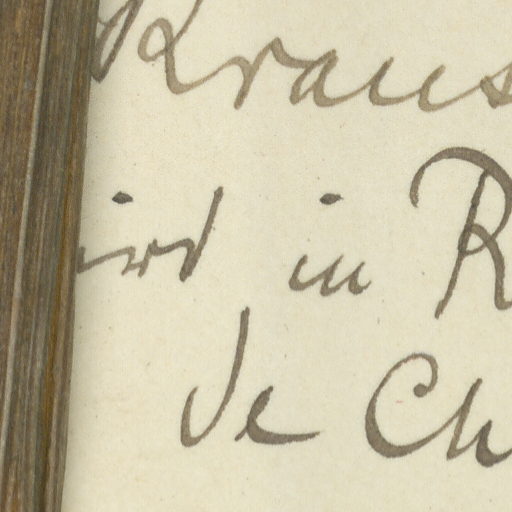 Kraus
ird in R
de Ch